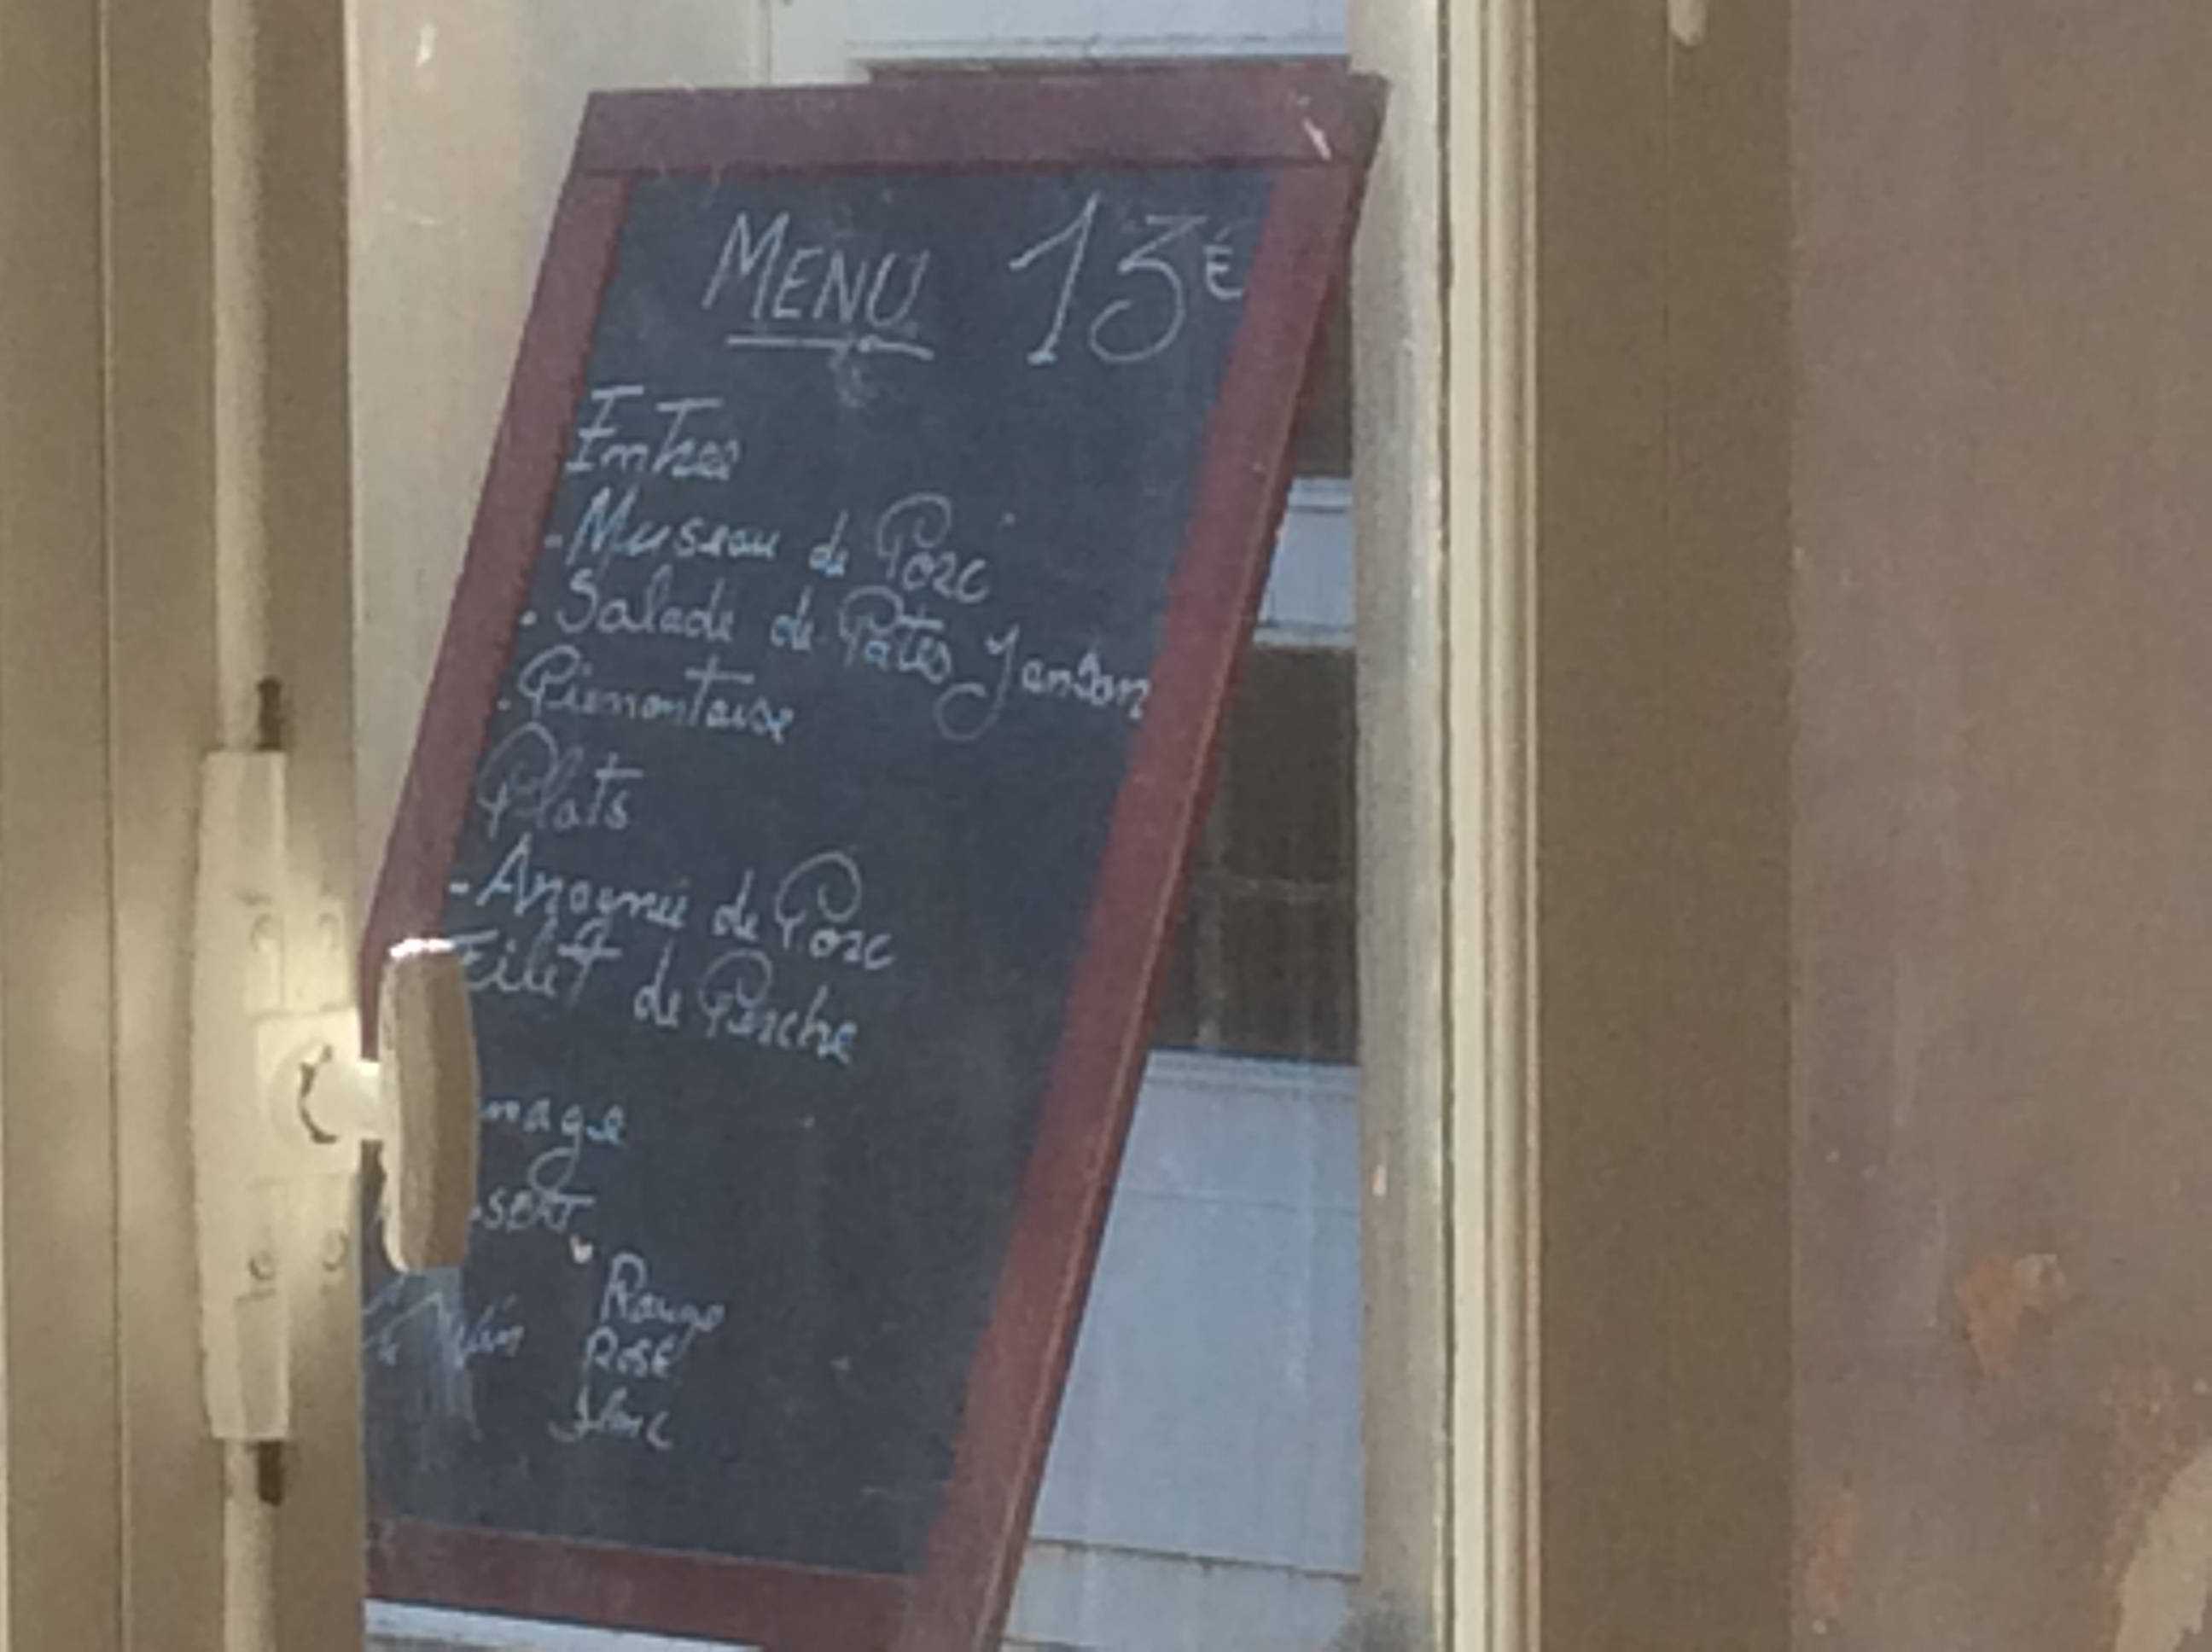 MENU 13€
Entree
- Museau de Porc
. Salade de Pâtes Jambon
. Piemontaise
Plats
- Araignée de Porc
Filet de Perche
mage
sert
Rouge
Vin Rosé
Blanc